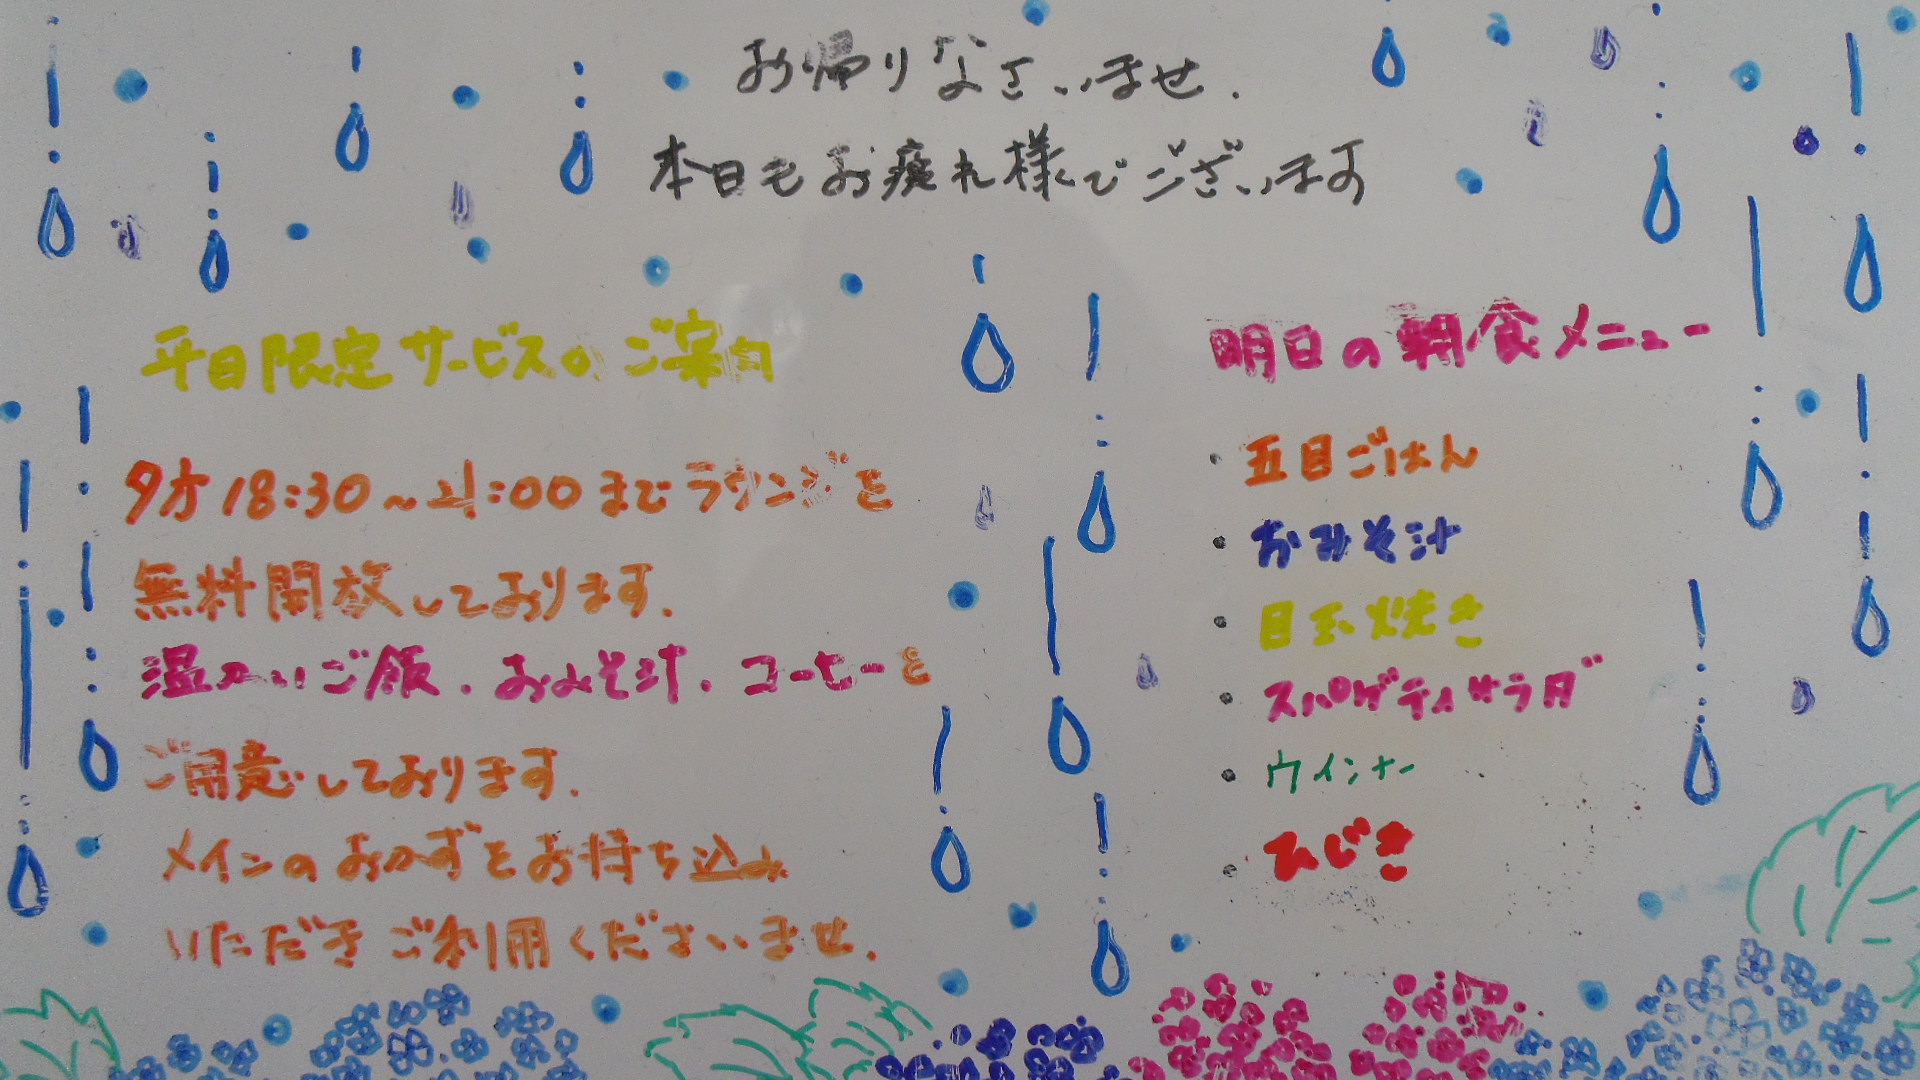 お帰りなさいませ.
本日もお疲れ様でございます
平日限定サービスのご案内
夕方18:30～21:00までラウンジを
無料開放しております.
温かいご飯.おみそ汁.コーヒーを
ご用意しております.
メインのおかずをお持ち込み
いただきご利用くださいませ.
明日の朝食メニュー
・五目ごはん
・おみそ汁
・目玉焼き
・スパゲティサラダ
・ウインナー
・ひじき